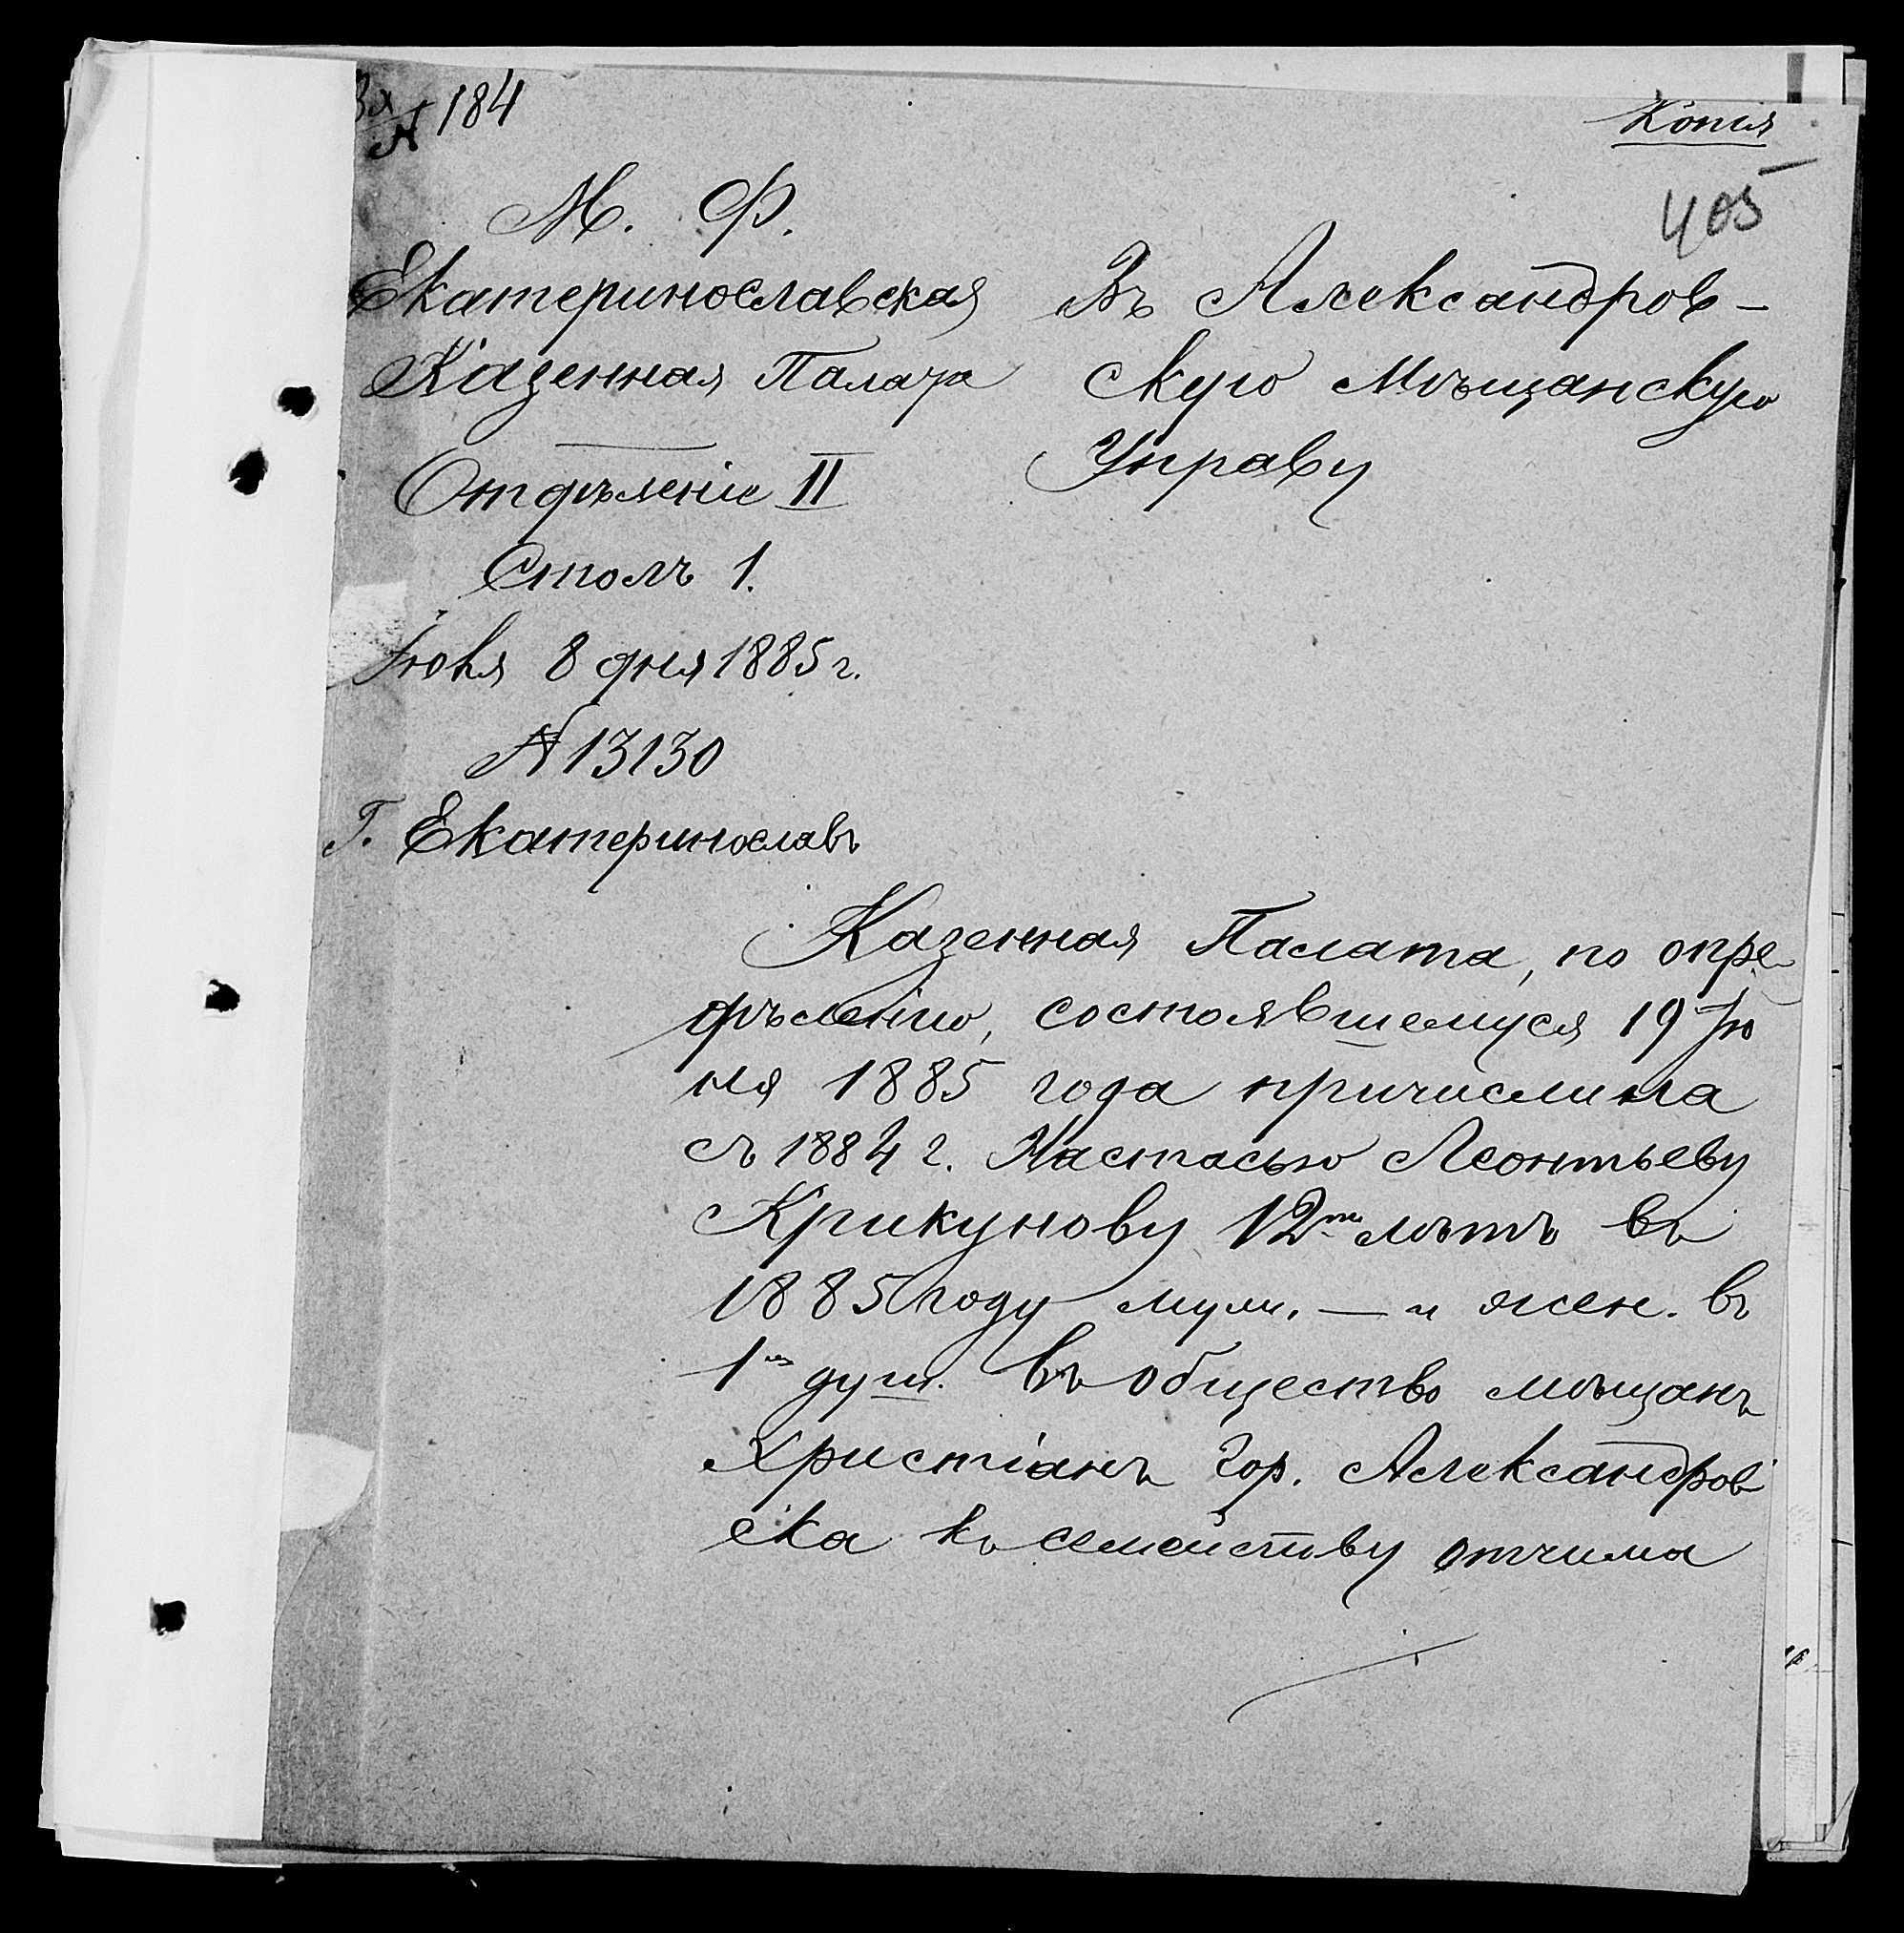 Вх № 184
Копія
405
М. Ф.
Екатеринославская
Казенная Палата
Отдѣленіе II
Столъ 1.
Іюля 8 дня 1885 г.
№ 13130
Г. Екатеринославъ
Въ Александров-
скую Мѣщанскую
Управу
Казенная Палата, по опре-
дѣленію, состоявшемуся 19 Ію
ня 1885 года причислила
съ 1884 г. Настасью Леонтьеву
Крикунову 12ти лѣтъ въ
1885 году муж. — и жен. въ
1й душ. въ общество мѣщанъ
Христіанъ Гор. Александров
ска къ семейству отчима